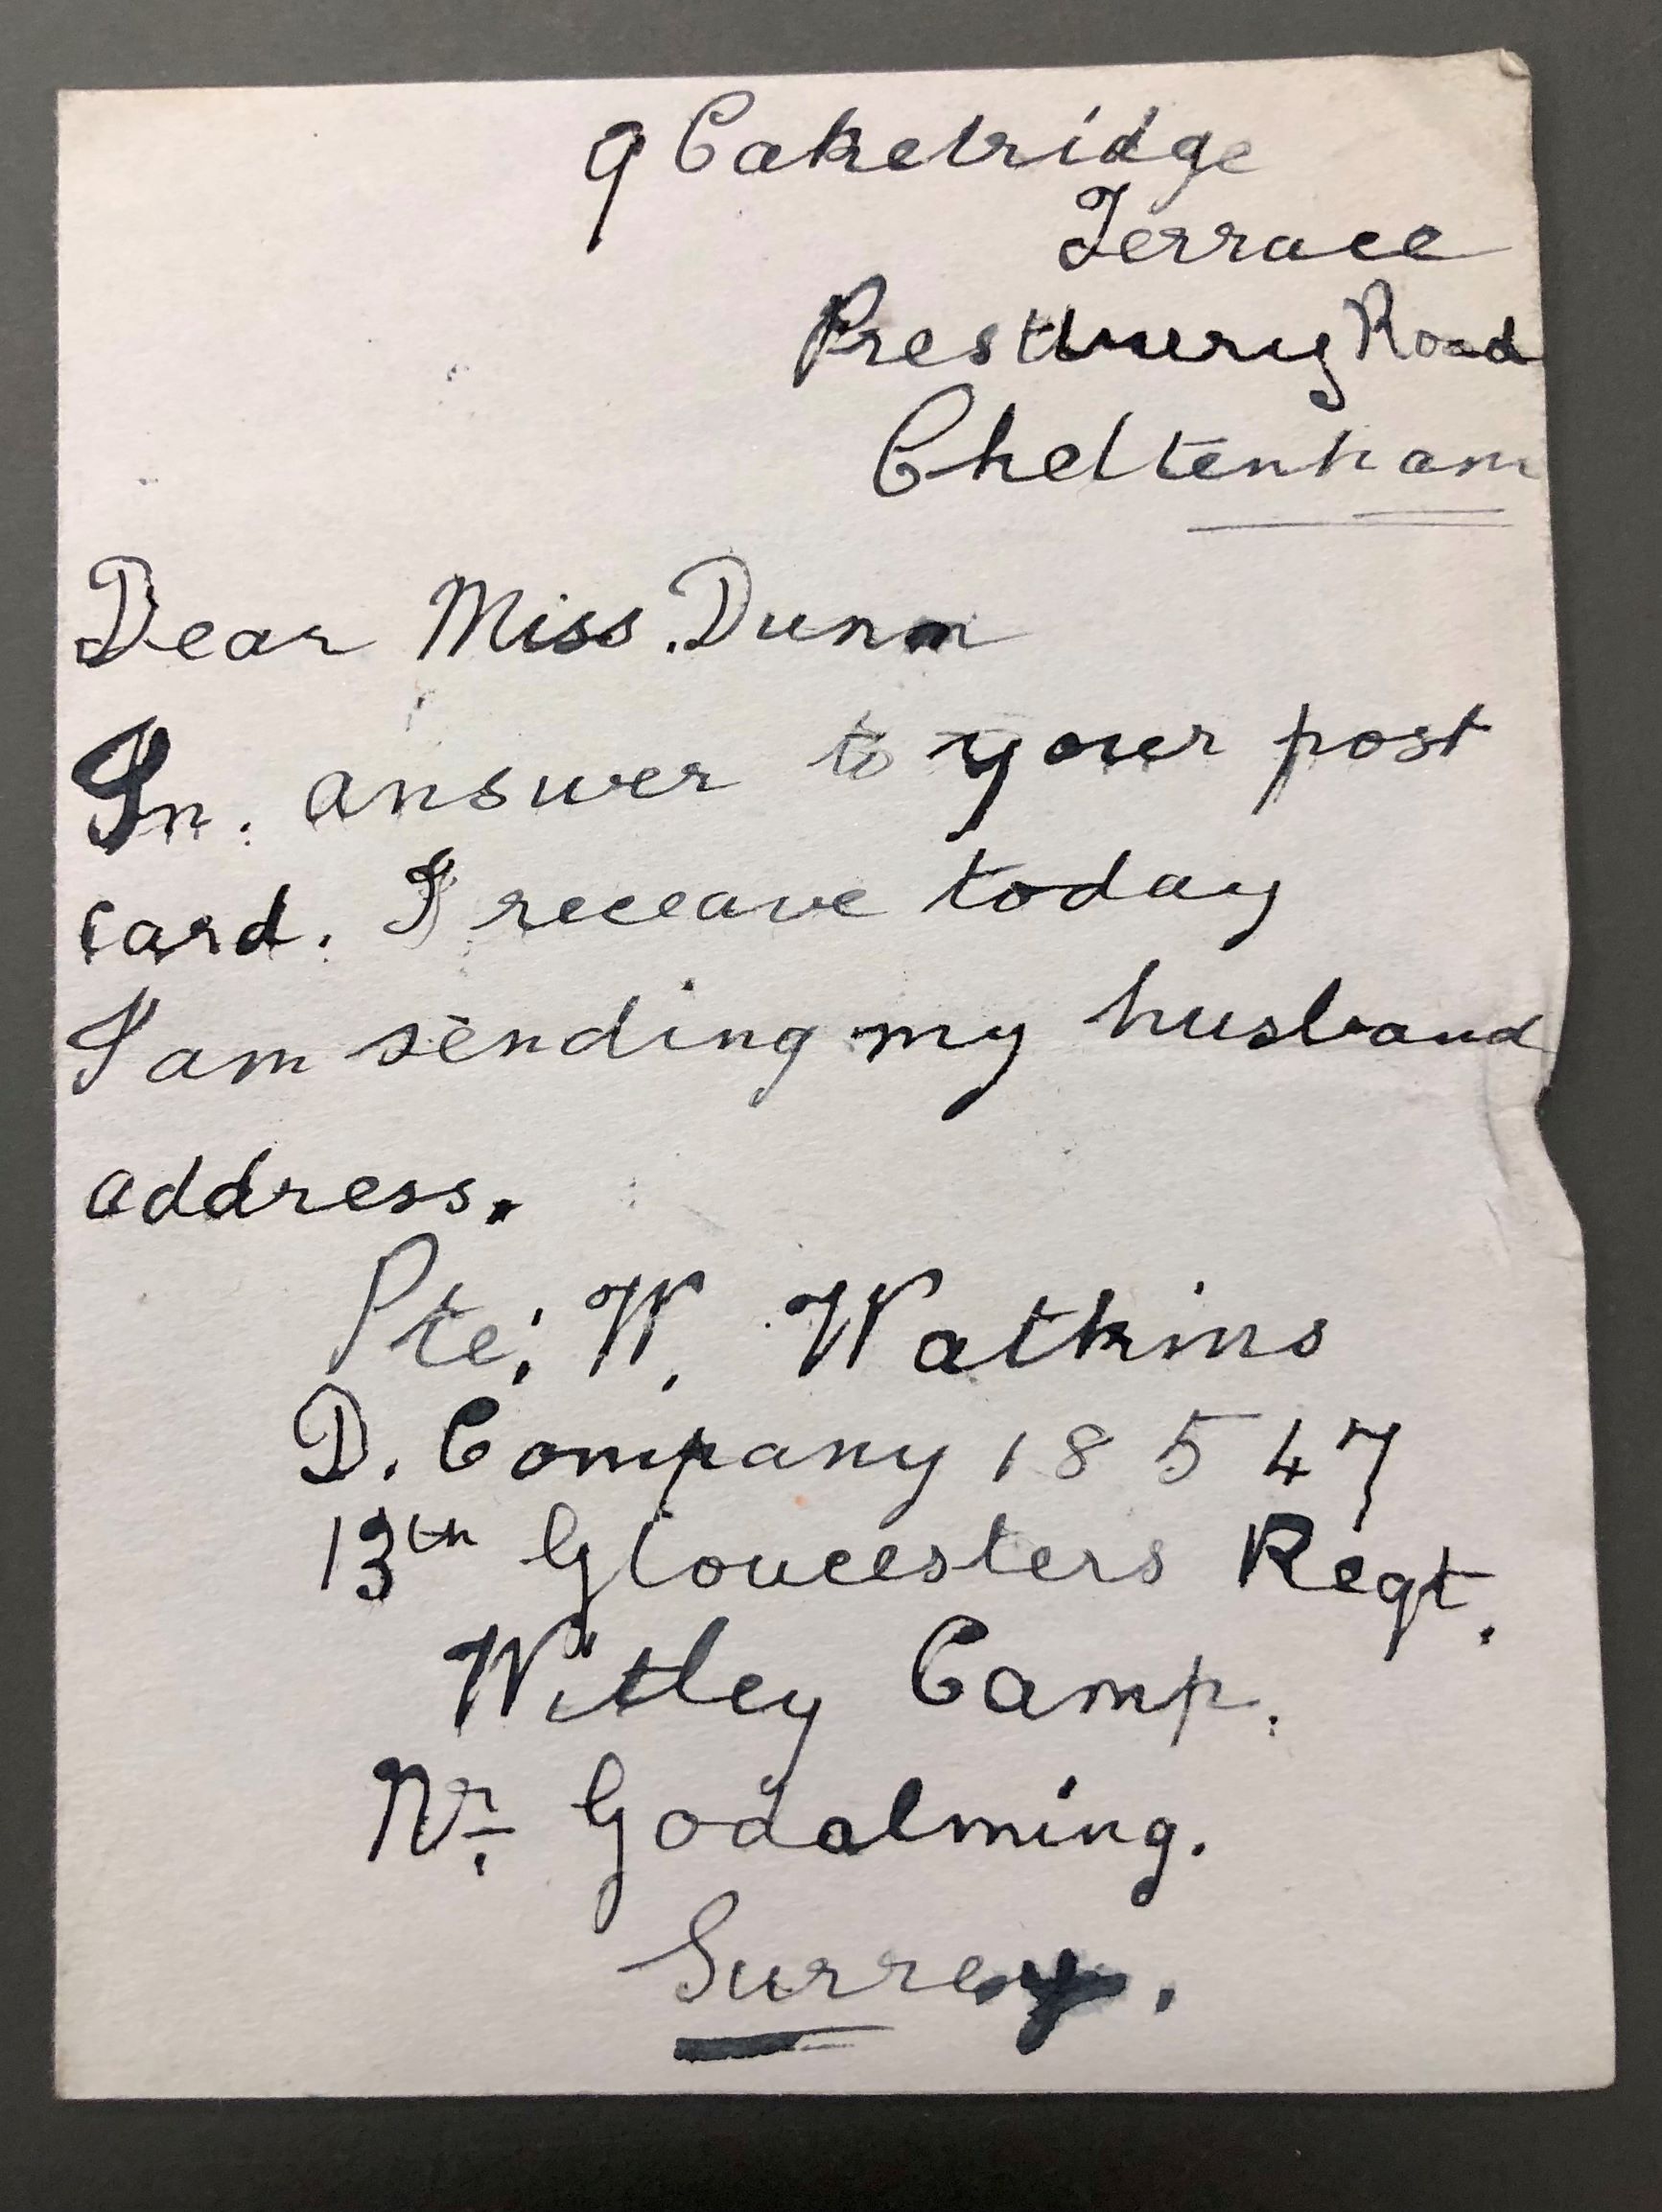 9 Cakebridge
Terrace
Prestbury Road
Cheltenham
Dear Miss. Dunn
In. answer to your post
card. I receave today
I am sending my husband
address.
Pte; W. Watkins
D. Company 18547
13th Gloucesters Regt.
Witley Camp.
Nr. Godalming.
Surrey.